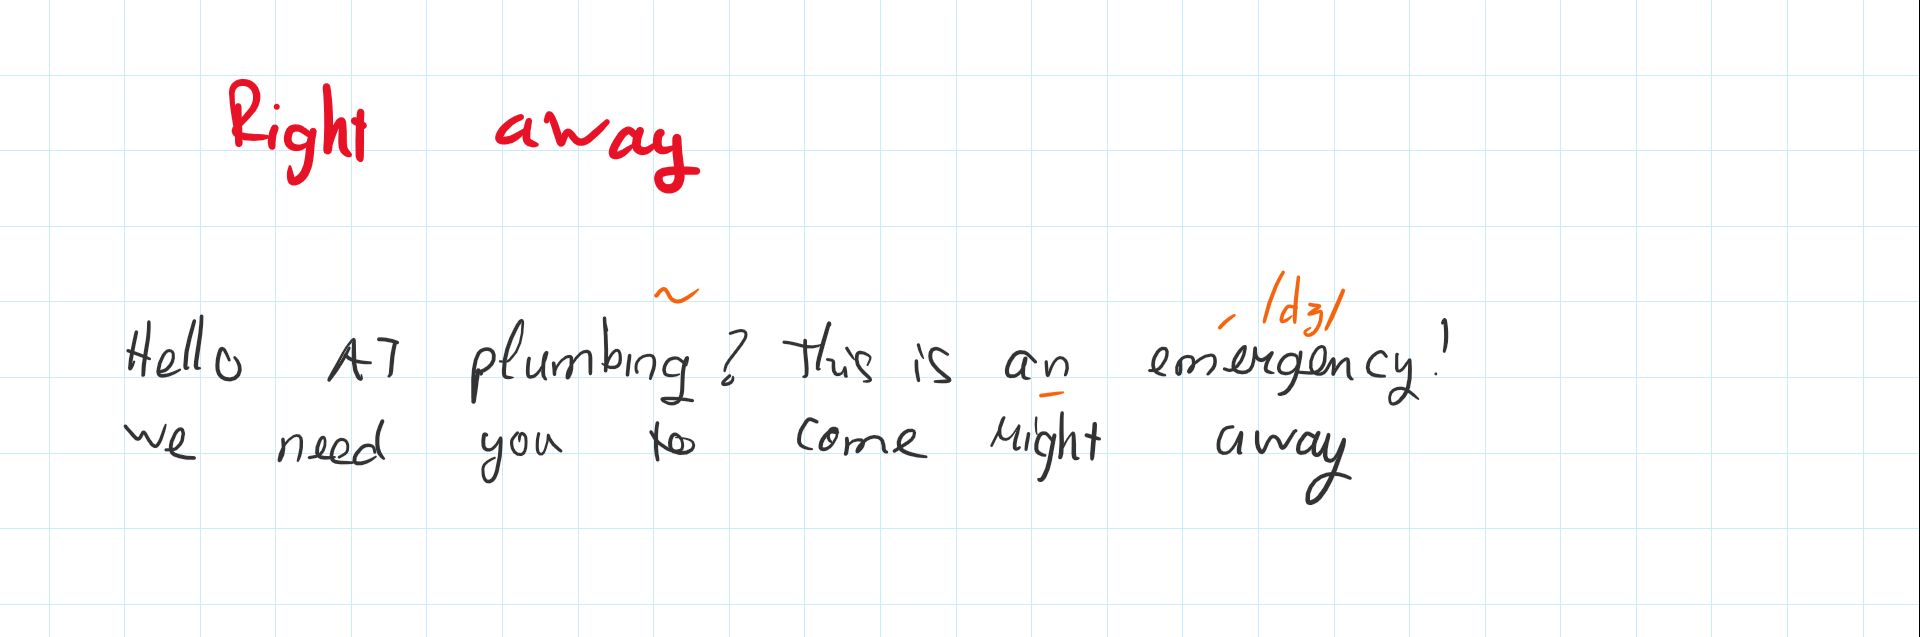 Right away
~
/dʒ/
Hello AT plumbing? This is an emergency!
we need you to come right away